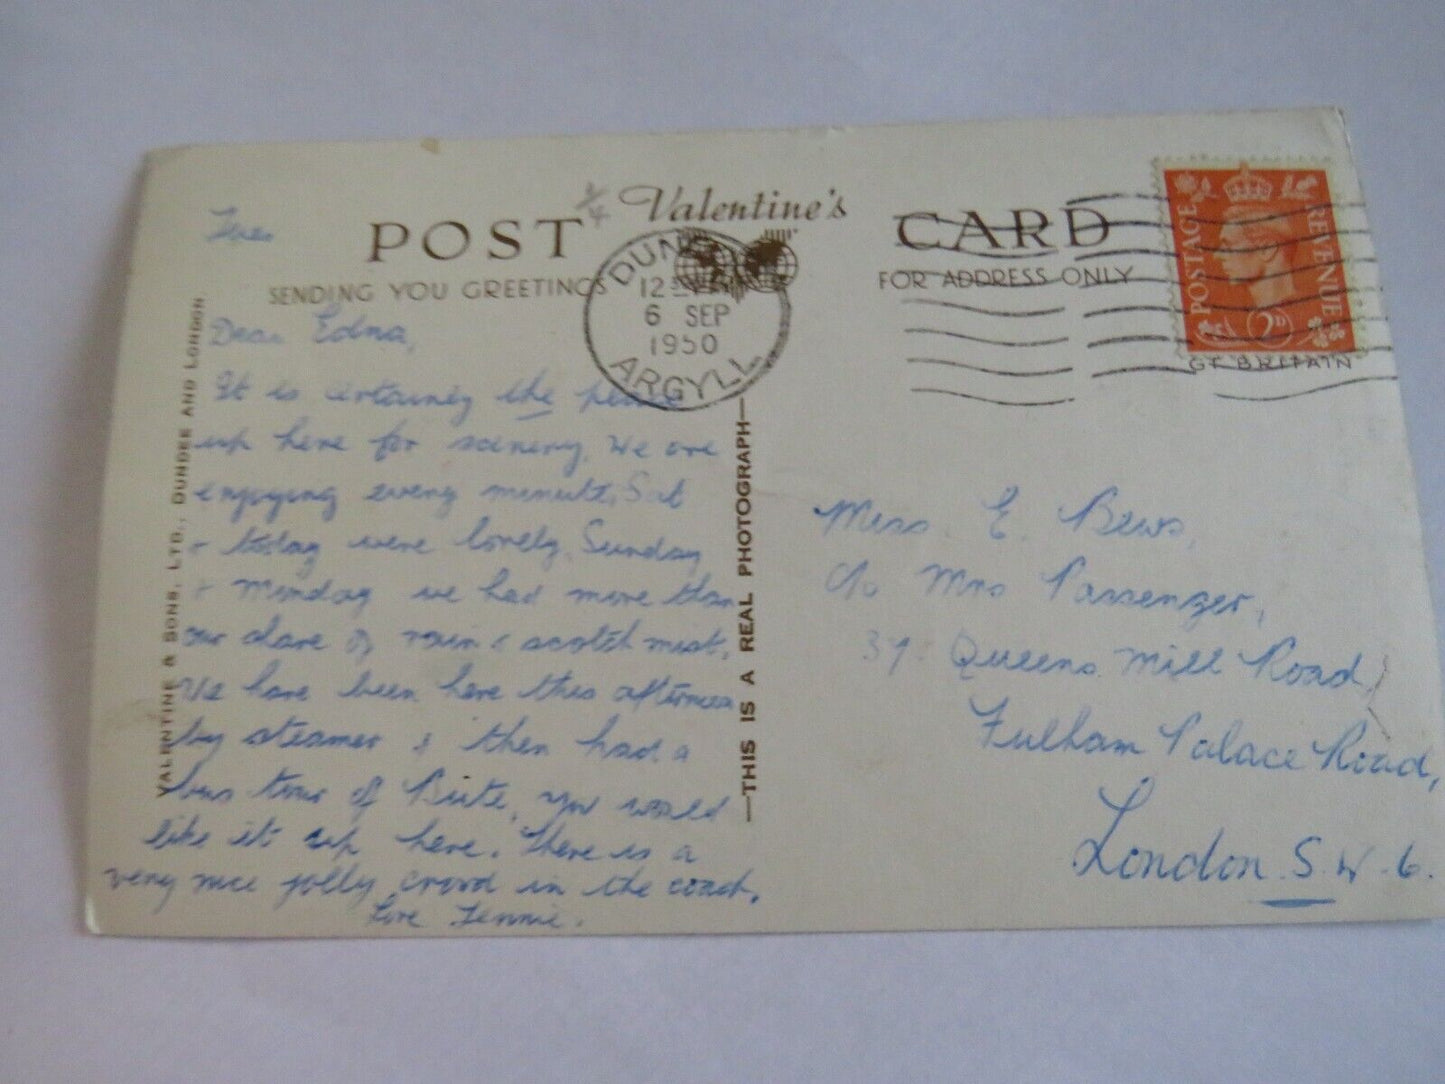 Tues
POST
2/4
Valentine's
CARD
SENDING YOU GREETINGS
FOR ADDRESS ONLY
DUN
12
6 SEP
1950
ARGYLL
POSTAGE
REVENUE
2D
GT. BRITAIN
VALENTINE & SONS, LTD., DUNDEE AND LONDON
—THIS IS A REAL PHOTOGRAPH—
Dear Edna,
It is certainly the place
up here for scenery. We are
enjoying every minute. Sat
+ today were lovely. Sunday
+ Monday we had more than
our share of rain & scotch mist.
We have been here this afternoon
by steamer & then had a
bus tour of Bute, you would
like it up here. There is a
very nice jolly crowd in the coach.
Love Jennie.
Miss. E. Bews,
c/o Mrs Passenger,
37. Queens Mill Road,
Fulham Palace Road,
London. S.W.6.